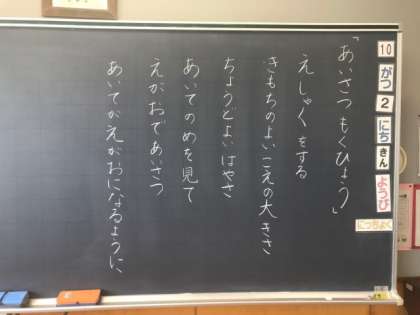 10
がつ
2
にち
きん
ようび
にっちょく
「あいさつもくひょう」
えしゃくをする
きもちのよいこえの大きさ
ちょうどよいはやさ
あいてのめを見て
えがおであいさつ
あいてがえがおになるように